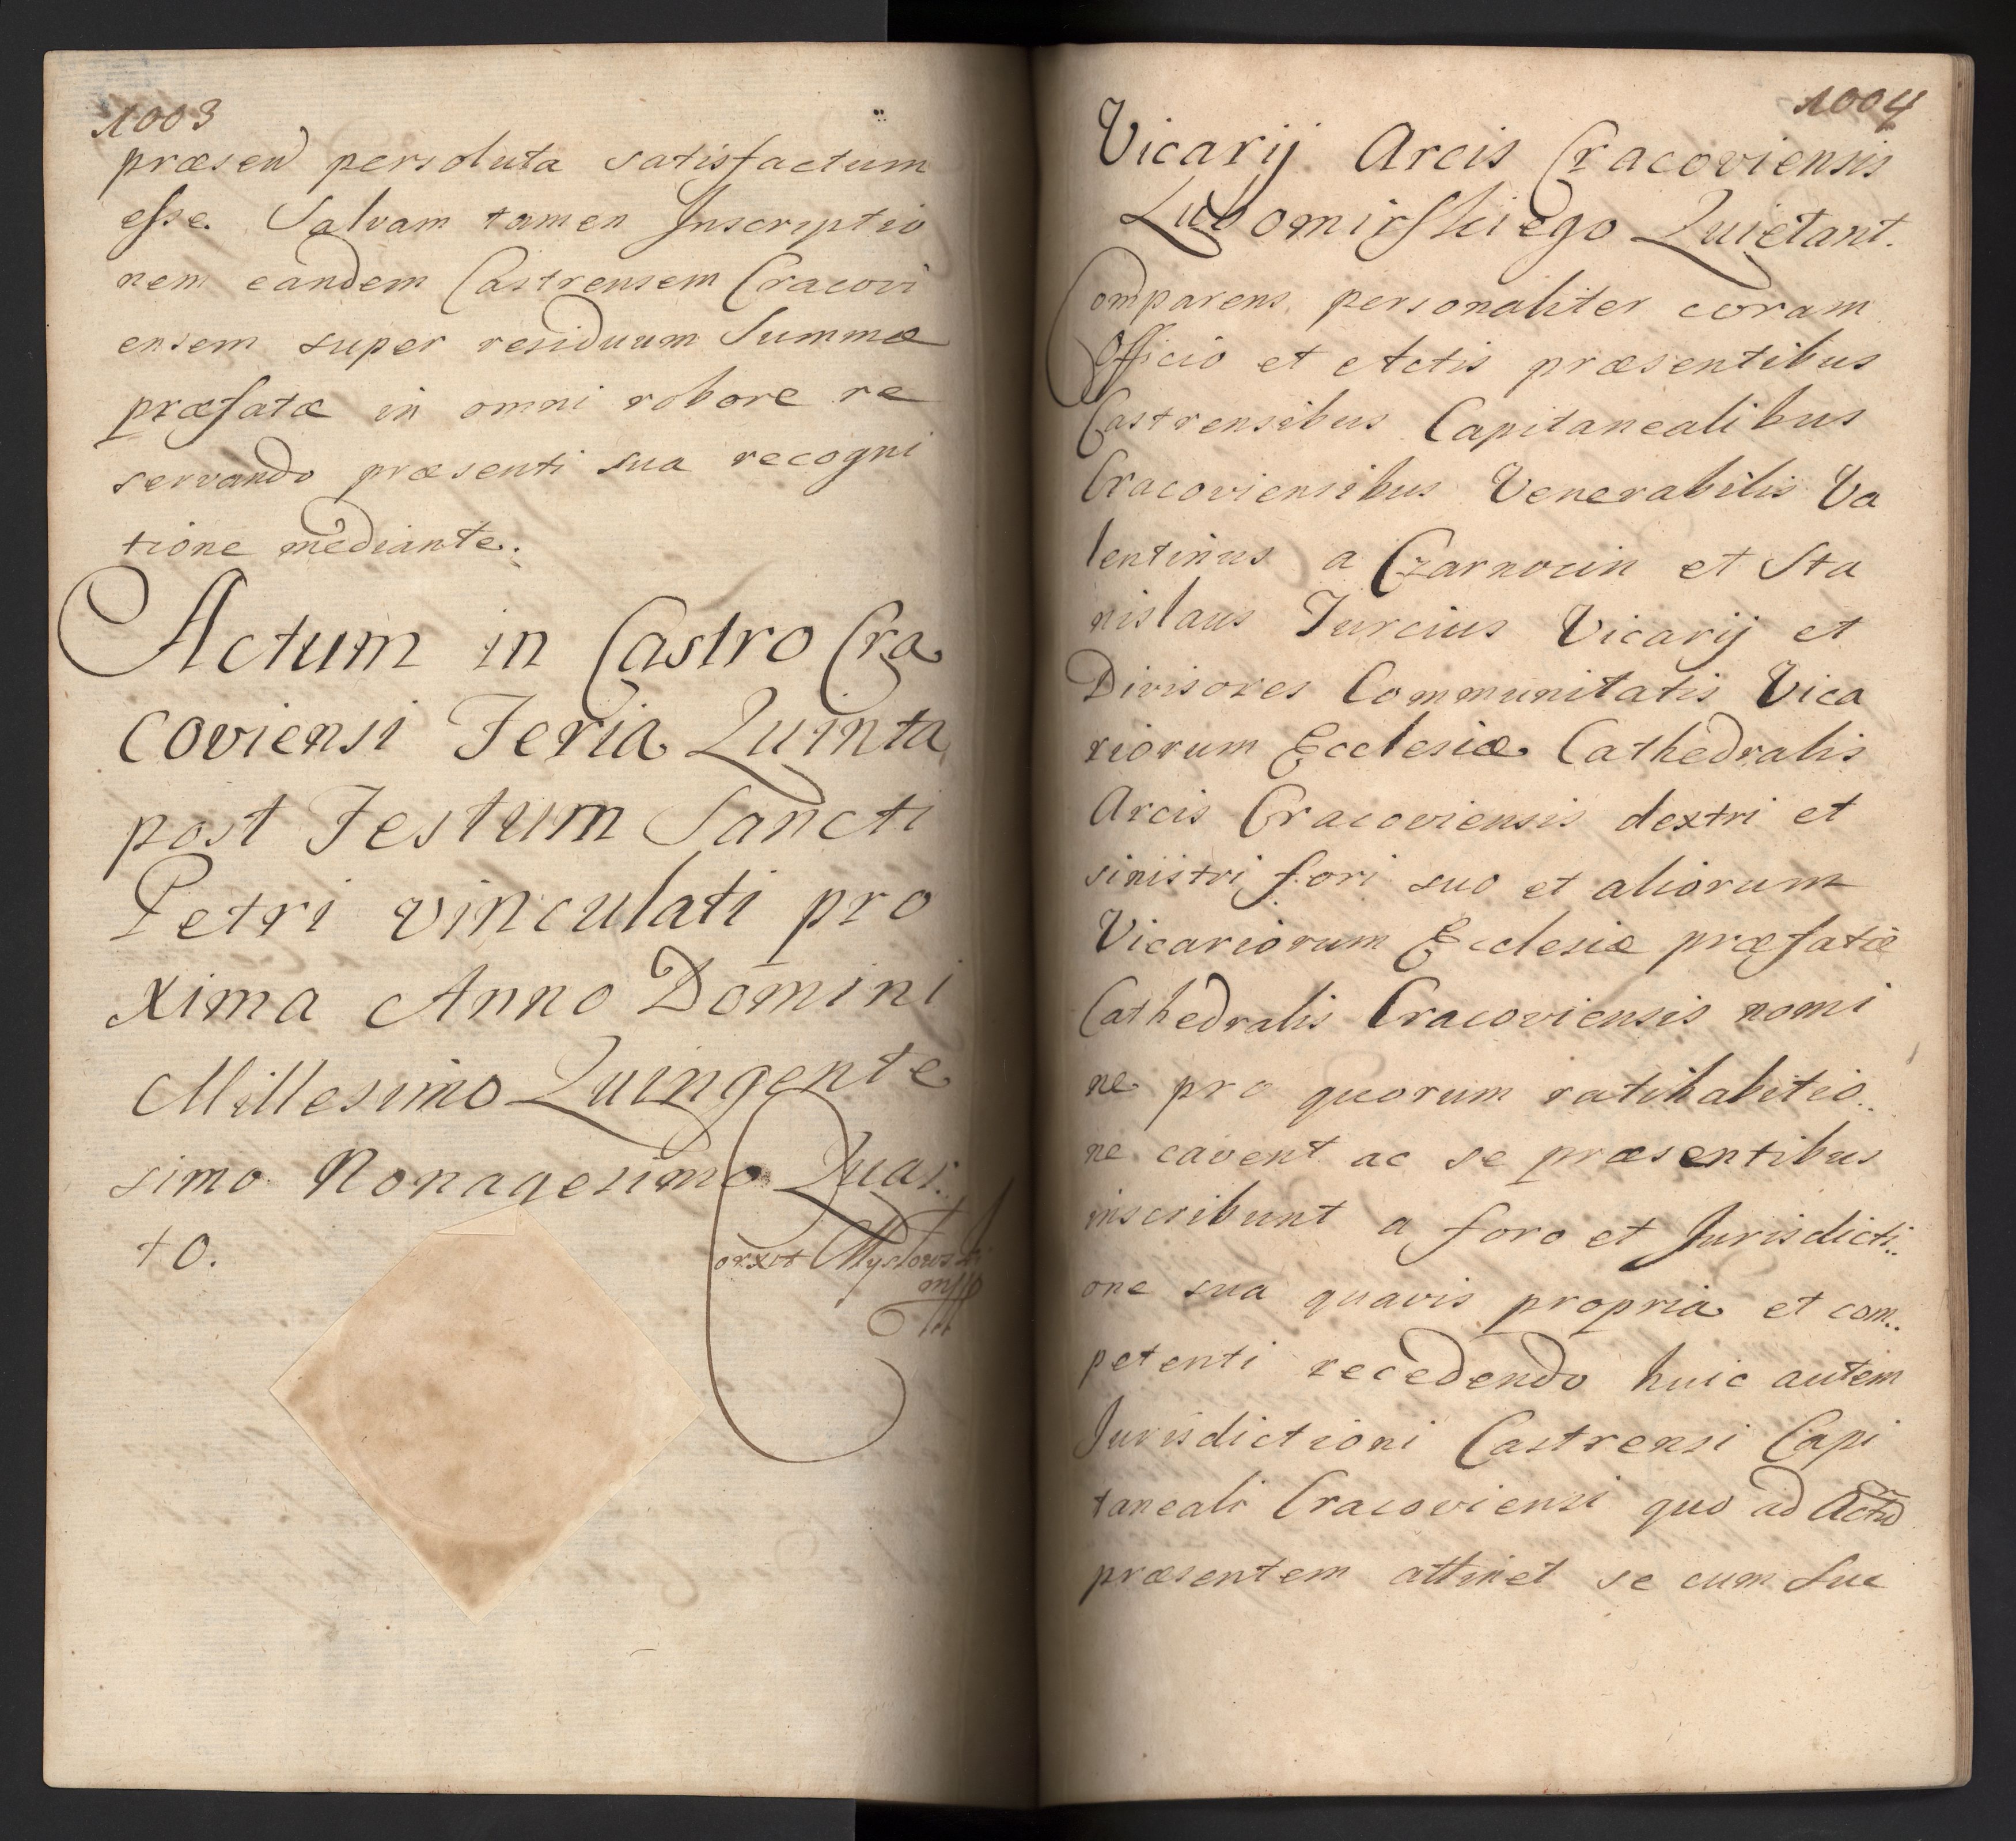 1003
præsen persoluta satisfactum
esse. Salvam tamen Inscriptio
nem eandem Castrensem Cracovi
ensem super residuum Summæ
præfatæ in omni robore re
servando præsenti sua recogni
tione mediante.
Actum in Castro Cra
coviensi Feria Quinta
post Festum Sancti
Petri vinculati pro
xima Anno Domini
Millesimo Quingente
simo Nonagesimo Quar..
to.
1004
Vicarij Arcis Cracoviensis
Lubomirskiego Quietant.
Comparens personaliter coram
Officio et Actis præsentibus
Castrensibus Capitanealibus
Cracoviensibus Venerabilis Va
lentinus a Czarnocin et Sta
nislaus Jurcius Vicarij et
Divisores Communitatis Vica
riorum Ecclesiæ Cathedralis
Arcis Cracoviensis dextri et
sinistri fori suo et aliorum
Vicariorum Ecclesiæ præfatæ
Cathedralis Cracoviensis nomi
ne pro quorum ratihabitio..
ne cavent ac se præsentibus
inscribunt a foro et Jurisdicti..
one sua quavis propria et com..
petenti recedendo huic autem
Jurisdictioni Castrensi Capi
taneali Cracoviensi quo ad Actū
præsentem attinet se cum suc